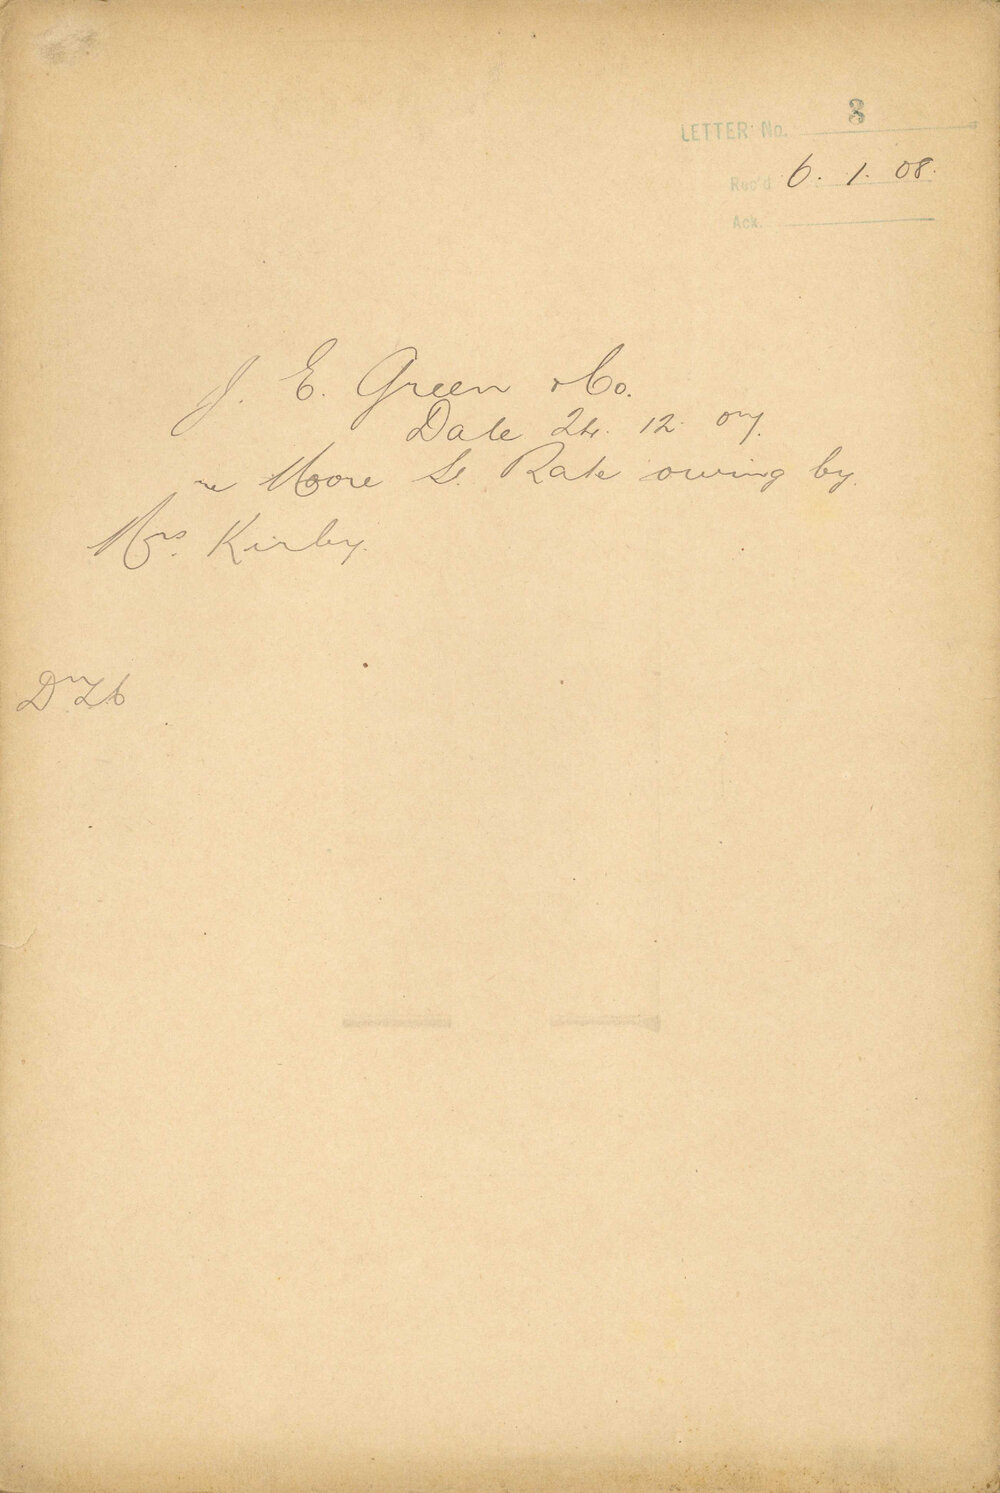 LETTER No. 8
Rec'd 6. 1. 08.
Ack.
J. E. Green & Co.
Date 24. 12. 07.
re Moore St. Rate owing by
Mrs. Kirby.